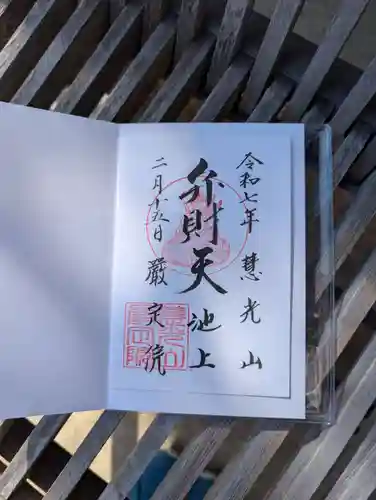 令和七年 慧光山
弁財天 池上
二月十五日 嚴定院